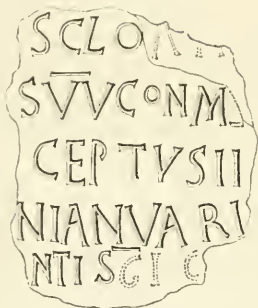 SCLO
SV̅VCONM
CEPTVSII
NIANVARI
NTIS